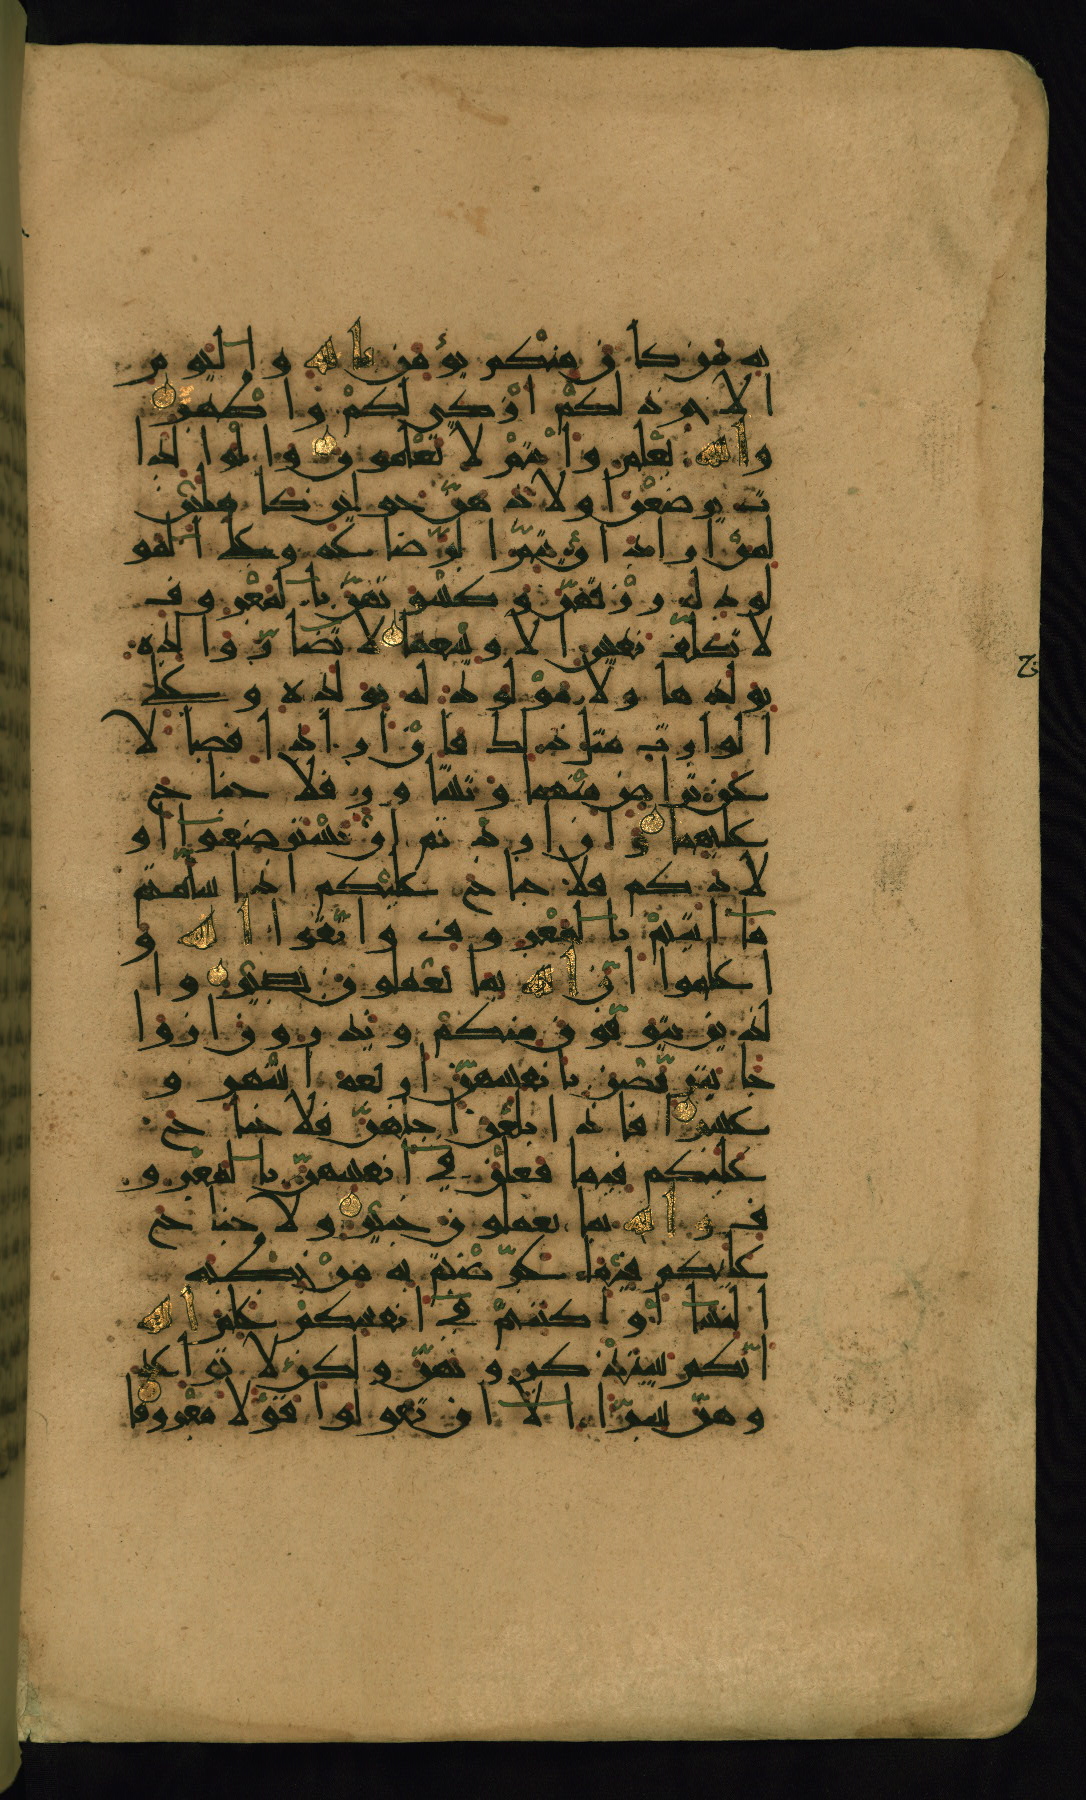 به من كان منكم يؤمن بالله واليو م
الاخر ذلكم ازكى لكم واطهر
والله يعلم وانتم لا تعلمون والوالدا
ت يرضعن اولادهن حولين كاملين
لمن اراد ان يتم الرضاعة وعلى المو
لود له رزقهن وكسوتهن بالمعروف
لا تكلف نفس الا وسعها لا تضار والده
بولدها ولا مولود له بولده وعلى
الوارث مثل ذلك فان ارادا فصالا
عن تراض منهما وتشاور فلا جناح
عليهما وان اردتم ان تسترضعوا او
لادكم فلا جناح عليكم اذا سلمتم
ما اتيتم بالمعروف واتقوا الله و
اعلموا ان الله بما تعملون بصير وا
لذين يتوفون منكم ويذرون ازوا
جا يتربصن بانفسهن اربعة اشهر و
عشرا فاذا بلغن اجلهن فلا جناح
عليكم فيما فعلن في انفسهن بالمعرو
ف والله بما تعملون خبير ولا جناح
عليكم فيما عرضتم به من خطبة
النسا او اكننتم في انفسكم علم الله
انكم ستذكرونهن ولكن لا تواعد
وهن سرا الا ان تقولوا قولا معروفا